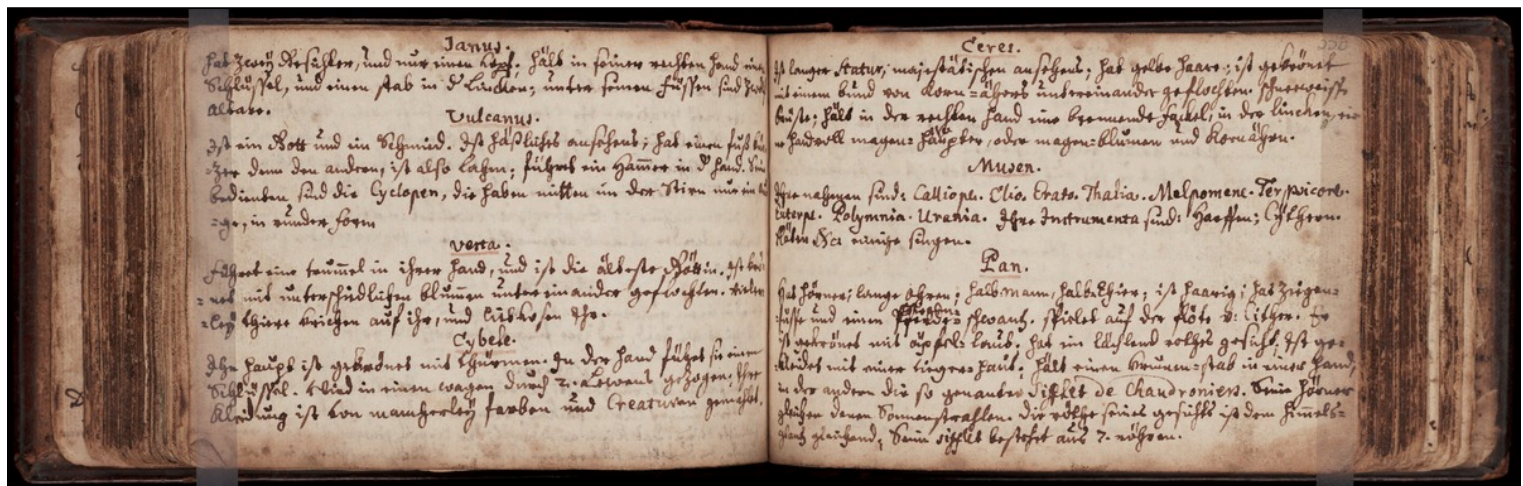 Janus.
hat zweÿ Gesichter, und nur einen Kopf. hält in seiner rechten hand einen
Schlüssel, und einen stab in d' Lincken; unter seinen Füssen sind zwölf
altare.
Vulcanus.
Ist ein Gott und ein Schmied. Ist häßliches ansehens; hat einen fuß kür-
=zer denn den andern, ist also lahm; führet ein Hammer in d' hand. Sein
bedienten sind die Cyclopen, die haben mitten in der Stirn nur ein au
=ge, in runder form
Vesta.
Führet eine trummel in ihrer hand, und ist die älteste Göttin. Ist krö
=net mit unterschiedlichen blumen untereinander geflochten. vieler
=leÿ thiere kriechen auf ihr, und liebkosen Ihr.
Cybele.
Ihr haupt ist gekrönet mit thürmen. In der hand führet sie einen
Schlüssel. Wird in einem wagen durch 2. Lewens gezogen. Ihre
kleidung ist von mancherleÿ farben und Creaturen gemahlt.
Ceres.
ist langer Statur, majestätischen ansehens; hat gelbe haare; ist gekrönet
mit einem bund von Korn=ähers untereinander geflochten. schneeweisse
brüste; hält in der rechten hand eine brennende fackel, in der lincken, ei
ne handvoll magen=häupter, oder magen=blumen und Kornähen.
Musen.
Ihre nahmen sind: Calliope. Clio. Erato. Thalia. Melpomene. Terpsicore.
Euterpe. Polymnia. Urania. Ihre Instrumenta sind: Harffen; Cythern.
flöten &c: einige singen.
Pan.
Hat hörner; lange ohren; halb mann, halb thier; ist haarig; hat ziegen=
füsse und einen schwantz. spielet auf der flöte v: Cither. Er
ist gekrönet mit laub. hat ein rothes gesicht. Ist ge=
kleidet mit einer tieger=haut; hält einen stab in einer hand,
in der andern die so genante Sifflet de Chaudroniers. Seine hörner
gleichen denen Sonnenstrahlen. Die röthe seines gesichts ist dem himmels=
glantz gleichend; Seine sifflet bestehet aus 7. röhren.